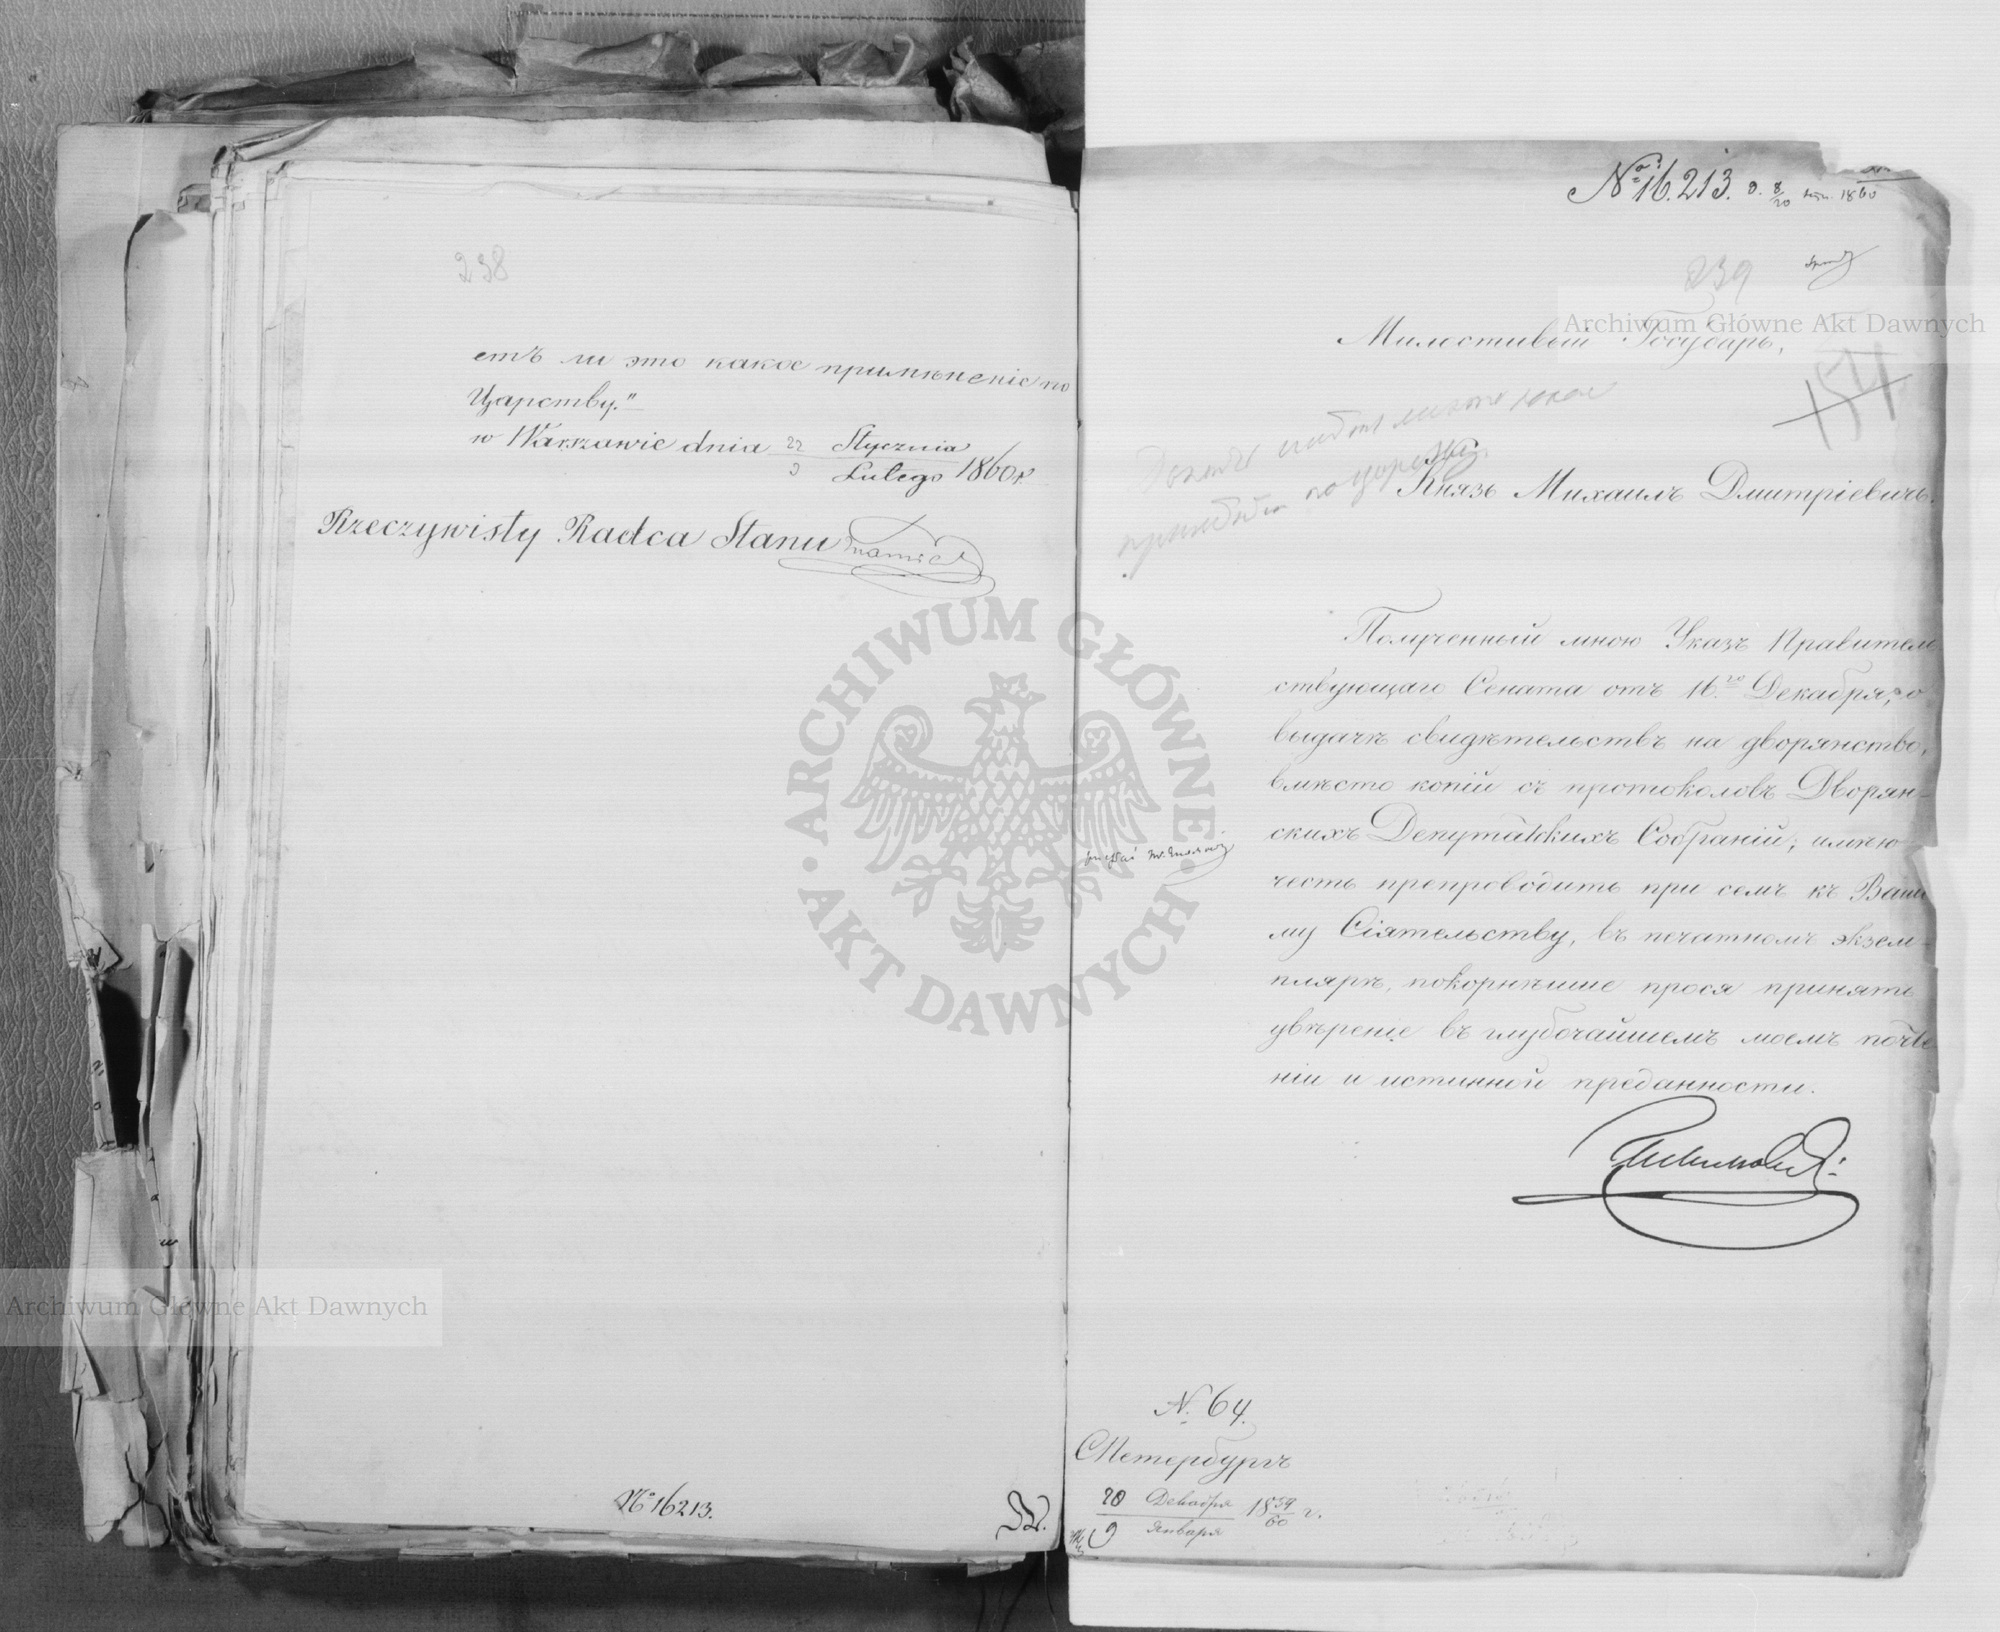 238
етъ ли это какое примѣненіе по
Царству."
w Warszawie dnia 22 Stycznia
3 Lutego 1860 r.
Rzeczywisty Radca Stanu
№ 16213.
№ 16.213. d. 8/20 1860
239
Милостивый Государь,
154
Князь Михаилъ Дмитріевичъ.
Полученный мною Указъ Правитель
ствующаго Сената отъ 16.го Декабря, о
выдачѣ свидѣтельствъ на дворянство,
вмѣсто копій съ протоколовъ Дворян-
скихъ Депутатскихъ Собраній, имѣю
честь препроводить при семъ къ Ваше
му Сіятельству, въ печатномъ экзем-
плярѣ, покорнѣйше прося принять
увѣреніе въ глубочайшемъ моемъ почте
ніи и истинной преданности.
N. 64.
СПетербургъ
28 Декабря 1859/60 г.
9 Января
Archiwum Główne Akt Dawnych
Archiwum Główne Akt Dawnych
ARCHIWUM GŁÓWNE AKT DAWNYCH